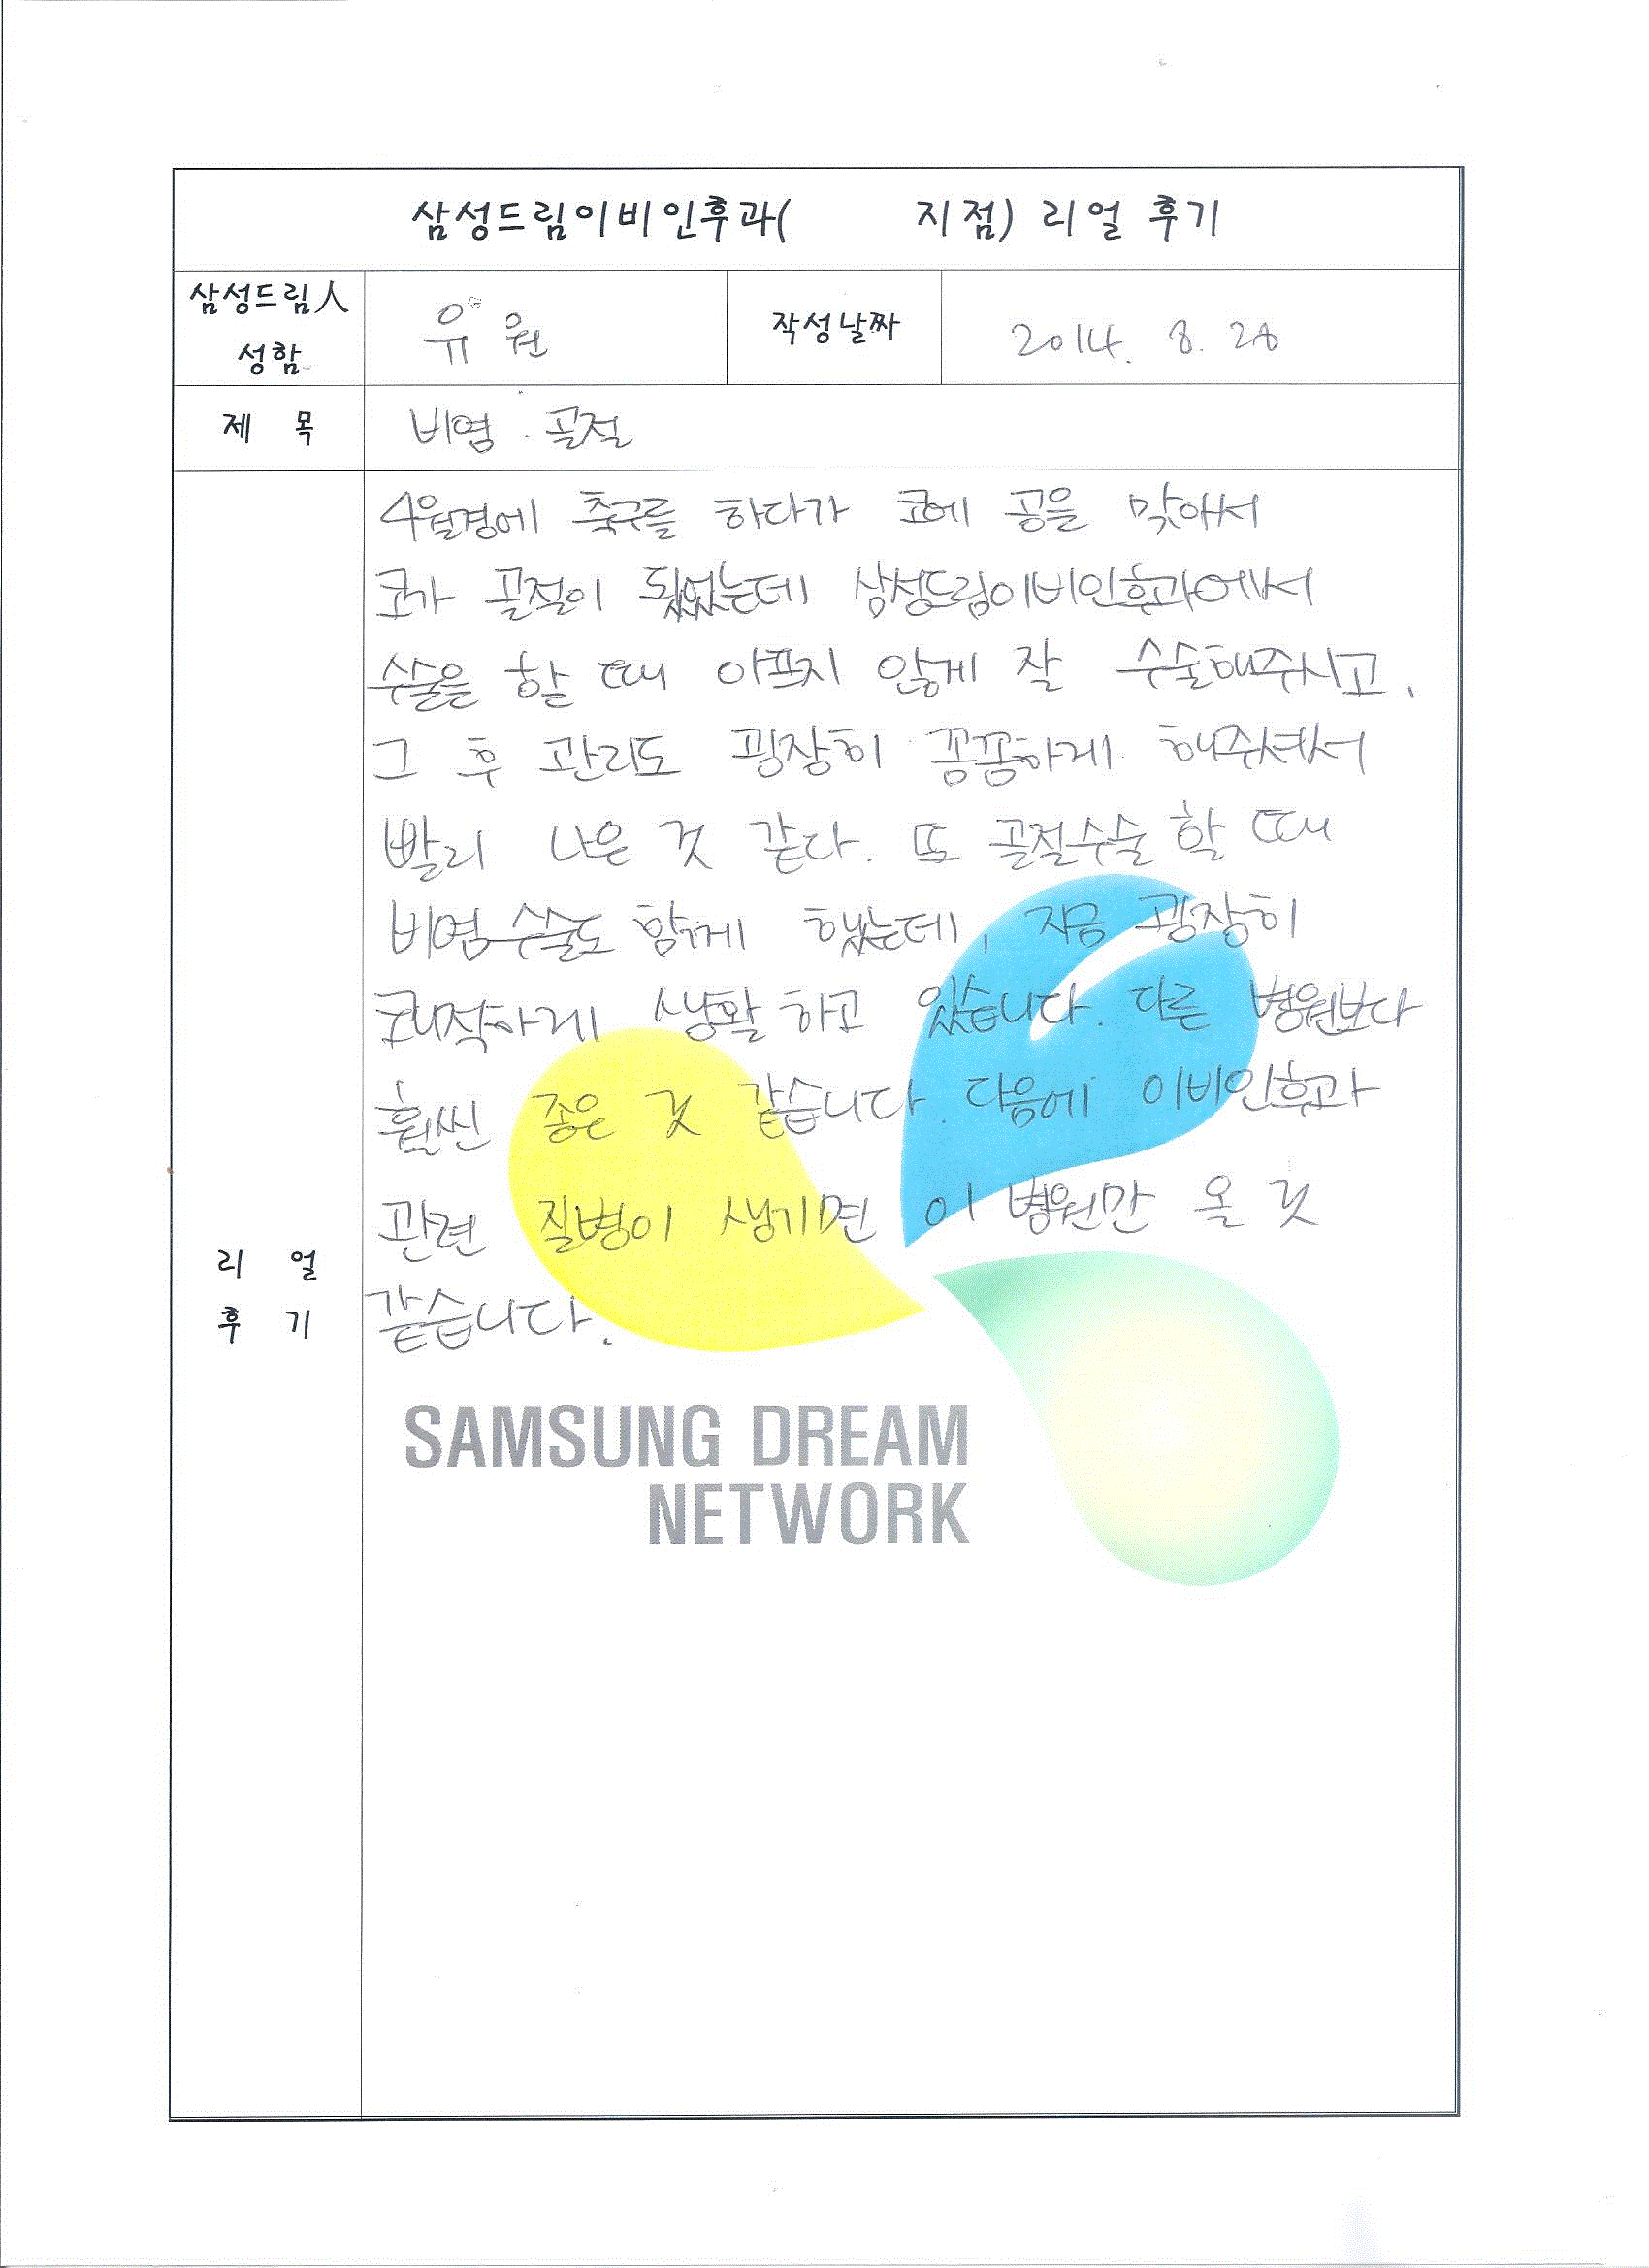 삼성드림이비인후과(          지점) 리얼 후기
삼성드림人
성함
유 원
작성날짜
2014. 8. 28
제 목
비염 · 골절
4월경에 축구를 하다가 코에 공을 맞아서
코가 골절이 됬었는데 삼성드림이비인후과에서
수술을 할 때 아프지 않게 잘 수술해주시고,
그 후 관리도 굉장히 꼼꼼하게 해주셔서
빨리 나은 것 같다. 또 골절수술 할 때
비염수술도 함께 했는데, 지금 굉장히
쾌적하게 생활 하고 있습니다. 다른 병원보다
훨씬 좋은 것 같습니다. 다음에 이비인후과
관련 질병이 생기면 이 병원만 올 것
같습니다.
리 얼
후 기
SAMSUNG DREAM
NETWORK